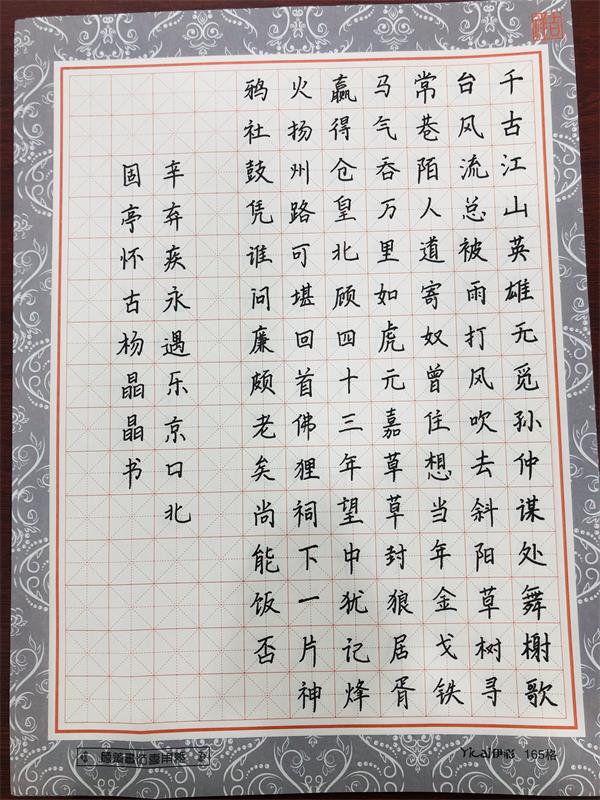 千古江山英雄无觅孙仲谋处舞榭歌
台风流总被雨打风吹去斜阳草树寻
常巷陌人道寄奴曾住想当年金戈铁
马气吞万里如虎元嘉草草封狼居胥
赢得仓皇北顾四十三年望中犹记烽
火扬州路可堪回首佛狸祠下一片神
鸦社鼓凭谁问廉颇老矣尚能饭否
辛弃疾永遇乐京口北
固亭怀古杨晶晶书
Yicai伊彩 165格